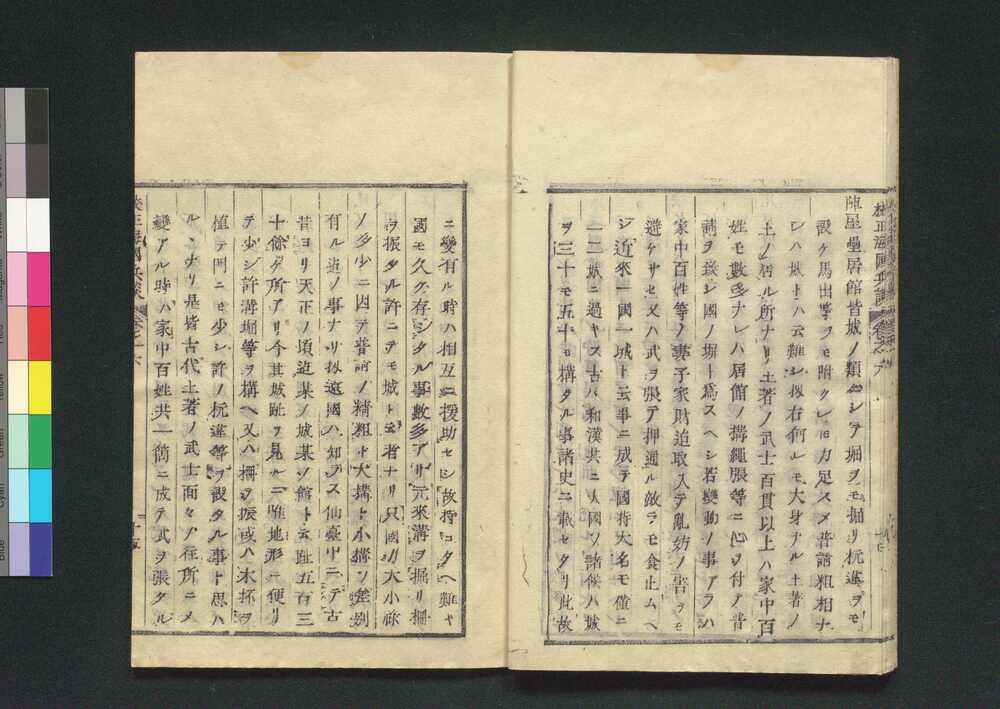 陣屋壘居館皆城ノ類ニシテ堀ヲモ掘リ杭違ヲモ
設ケ馬出等ヲモ附クレ𪜈力足スメ普請粗相ナ
レハ城トハ云難シ扨右何レモ大身ナル土著ノ
士ノ居ル所ナリ土著ノ武士百貫以上ハ家中百
姓モ數多ナレハ居館ノ搆繩張等ニ心ヲ付ア普
請ヲ嚴シ國ノ塀ト爲スヘシ若變動ノ事アラハ
家中百姓等ノ妻子家財迫取入テ亂妨ノ害ヲモ
避ケサセ又ハ武ヲ張テ押通ル敵ヲモ食止ムヘ
シ近來一國一城ト云事ニ成テ國持大名モ僅ニ
一二城ニ過キス古ハ和漢共ニ人國ノ諸侯ハ城
ヲ三十モ五十モ構タル事諸史ニ載セタリ此故
ニ變有ル時ハ相互ニ援助セシ故持コタヘ難ヤ
國モ久ク存シタル事數多アリ元來溝ヲ掘リ柵
ヲ振タル許ニテモ城ト云者ナリ只國ノ大小祿
ノ多少ニ因テ普請ノ精粗ト大搆ト小搆ノ差別
有ル迄ノ事ナリ扨遠國ハ知ラス仙臺中ニテ古
昔ヨリ天正ノ頃迄某ノ城某ノ館ト云趾五百三
十餘ケ所アリ今其城趾ヲ見ルニ唯地形ニ便リ
テ少シ許溝堀等ヲ構ヘ又ハ柵ヲ振或ハ木抔ヲ
植ヲ門ニモ少シ許ノ杭違等ヲ設タル事ト思ハ
ル丶ナリ是皆古代土著ノ武士面々ノ在所ニメ
變アル時ハ家中百姓共一箇ニ成テ武ヲ張タル